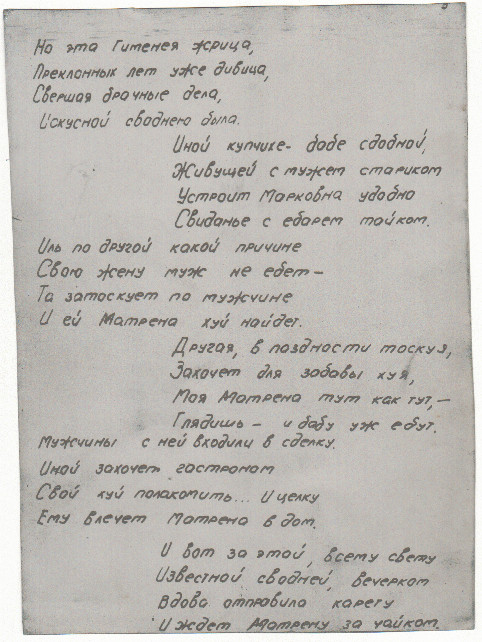 Но эта Гименея жрица,
Преклонных лет уже дивица,
Свершая брачные дела,
Искусной своднею была.
Иной купчихе- бабе сдобной,
Живущей с мужем стариком
Устроит Марковна удобно
Свиданье с ебарем тайком.
Иль по другой какой причине
Свою жену муж не ебет-
Та затоскует по мужчине
И ей Матрена хуй найдет.
Другая, в праздности тоскуя,
Захочет для забавы хуя,
Моя Матрена тут как тут,-
Глядишь- и бабу уже ебут.
Мужчины с ней входили в сделку.
Иной захочет гастроном
Свой хуй полакомить... И целку
Ему влечет Матрена в дом.
И вот за этой, всему свету
Известной сводней, вечерком
Вдова отправила карету
И ждет Матрену за чайком.